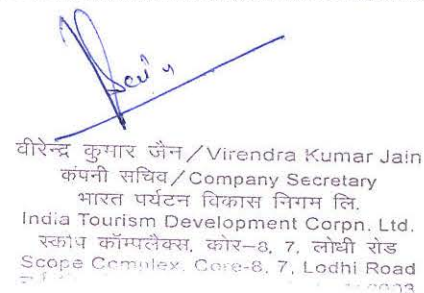 वीरेन्द्र कुमार जैन/Virendra Kumar Jain
कंपनी सचिव/Company Secretary
भारत पर्यटन विकास निगम लि.
India Tourism Development Corpn. Ltd.
स्कोप कॉम्पलैक्स, कोर-8, 7, लोधी रोड
Scope Complex, Core-8, 7, Lodhi Road